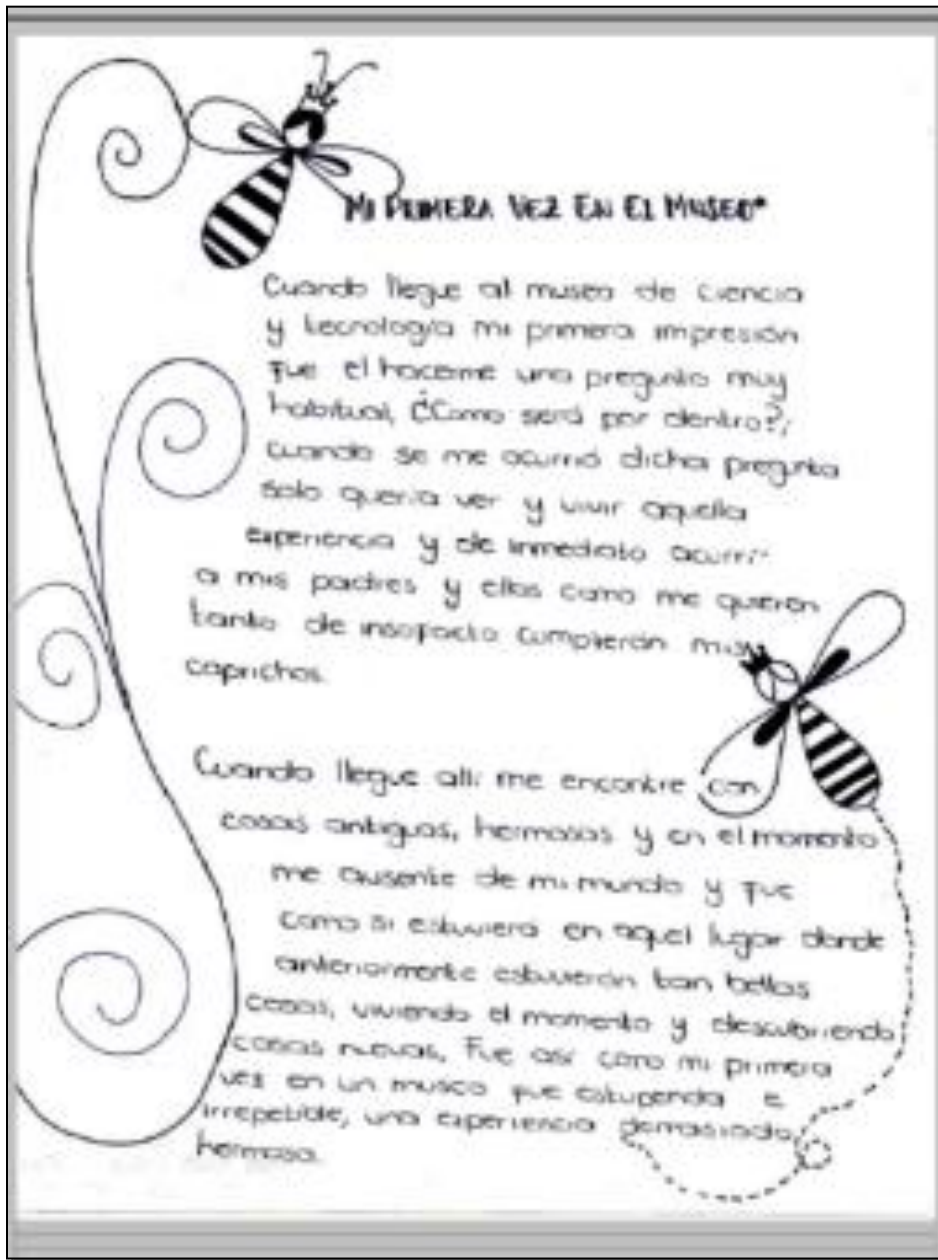 MI PRIMERA VEZ EN EL MUSEO*
Cuando llegue al museo de ciencia
y tecnología mi primera impresión
fue el hacerme una pregunta muy
habitual, ¿Como será por dentro?,
cuando se me ocurrió dicha pregunta
solo quería ver y vivir aquella
experiencia y de inmediato acurrí
a mis padres y ellos como me quieren
tanto de insofacto cumplierán mis
caprichos.
Cuando llegue allí me encontre con
cosas antiguas, hermosas y en el momento
me ausente de mi mundo y fue
como si estuvierá en aquel lugar donde
anteriormente estuvierón tan bellas
cosas, viviendo el momento y descubriendo
cosas nuevas, Fue así como mi primera
ves en un museo fue estupenda e
irrepetible, una experiencia demasiado
hermosa.